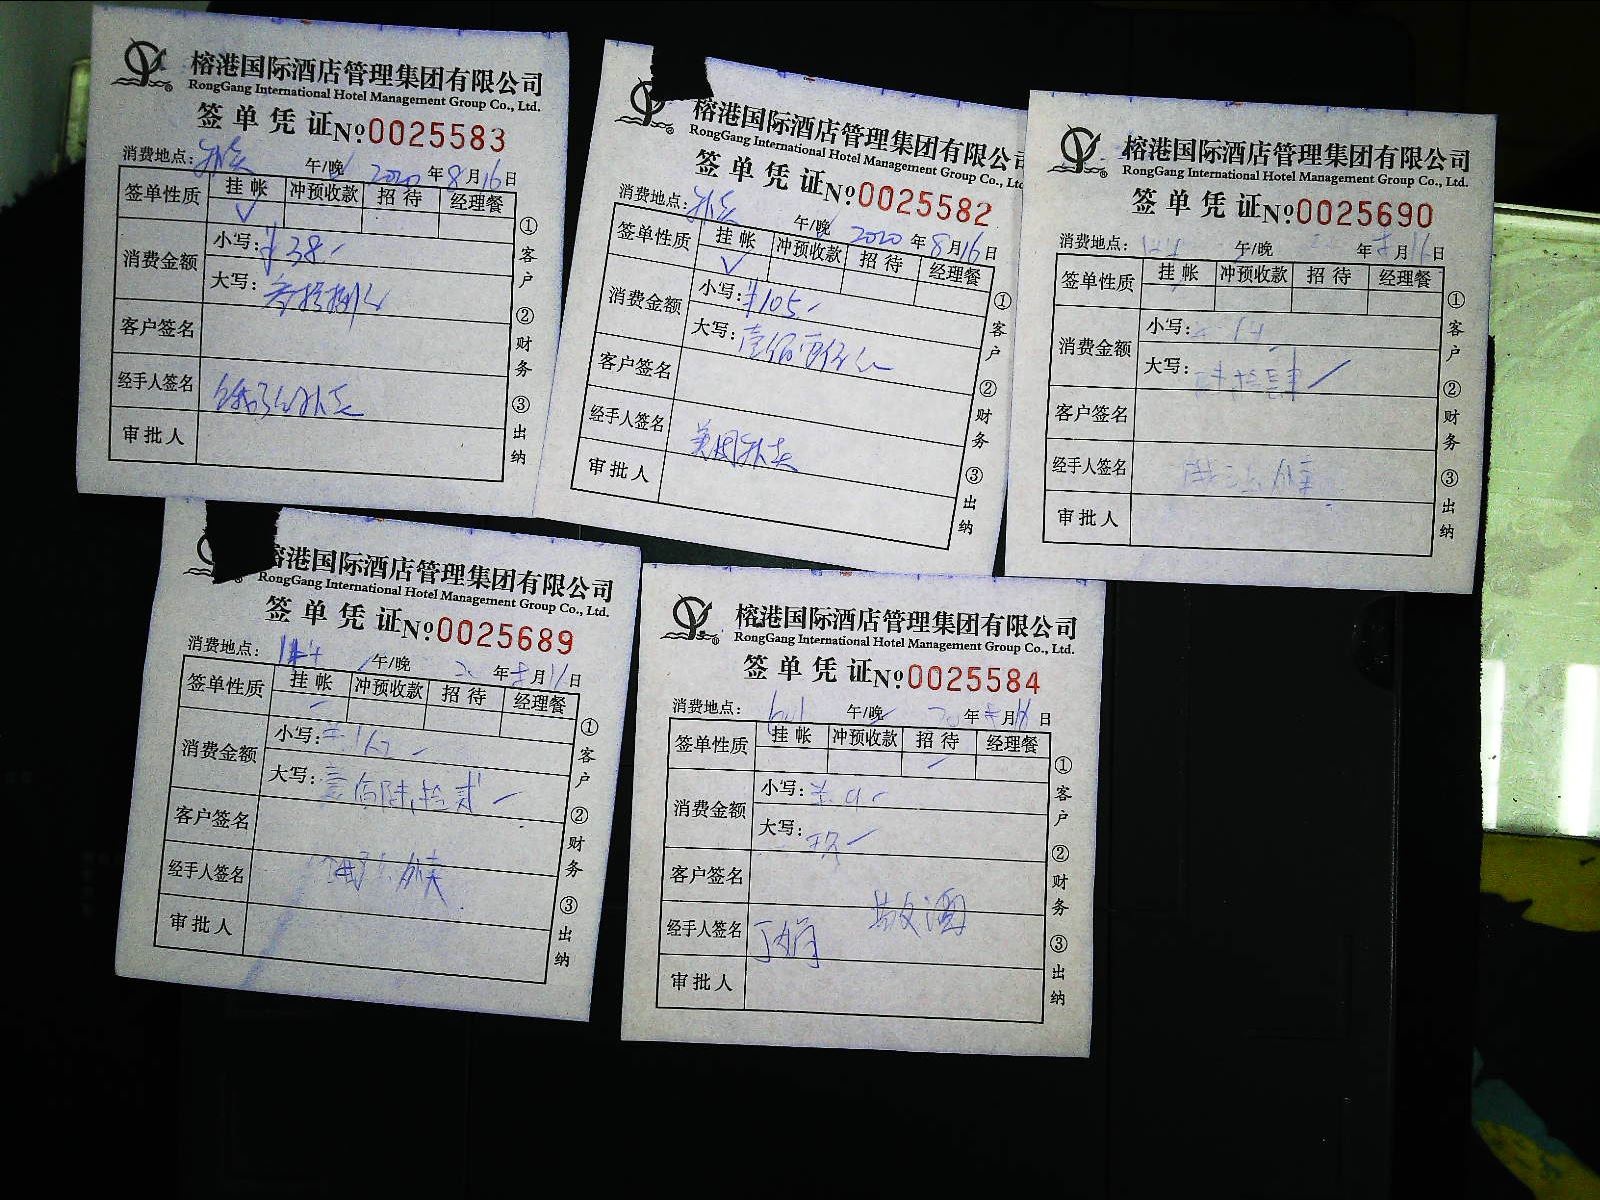 榕港国际酒店管理集团有限公司
RongGang International Hotel Management Group Co., Ltd.
签单凭证 №0025583
消费地点: 外卖 午/晚 2020年8月16日
签单性质 挂帐 冲预收款 招待 经理餐
✓
消费金额 小写: ¥38-
大写: 叁拾捌元
客户签名
经手人签名 外卖
审批人
①客户 ②财务 ③出纳
榕港国际酒店管理集团有限公司
RongGang International Hotel Management Group Co., Ltd.
签单凭证 №0025582
消费地点: 外卖 午/晚 2020年8月16日
签单性质 挂帐 冲预收款 招待 经理餐
✓
消费金额 小写: ¥105-
大写: 壹佰零伍元
客户签名
经手人签名 美团外卖
审批人
①客户 ②财务 ③出纳
榕港国际酒店管理集团有限公司
RongGang International Hotel Management Group Co., Ltd.
签单凭证 №0025690
消费地点: 午/晚 年 月16日
签单性质 挂帐 冲预收款 招待 经理餐
消费金额 小写:
大写:
客户签名
经手人签名
审批人
①客户 ②财务 ③出纳
港国际酒店管理集团有限公司
RongGang International Hotel Management Group Co., Ltd.
签单凭证 №0025689
消费地点: 午/晚 年 月 日
签单性质 挂帐 冲预收款 招待 经理餐
消费金额 小写:
大写: 壹佰陆拾贰
客户签名
经手人签名 外卖
审批人
①客户 ②财务 ③出纳
榕港国际酒店管理集团有限公司
RongGang International Hotel Management Group Co., Ltd.
签单凭证 №0025584
消费地点: 午/晚 年 月 日
签单性质 挂帐 冲预收款 招待 经理餐
消费金额 小写:
大写:
客户签名
经手人签名 敬酒
审批人
①客户 ②财务 ③出纳